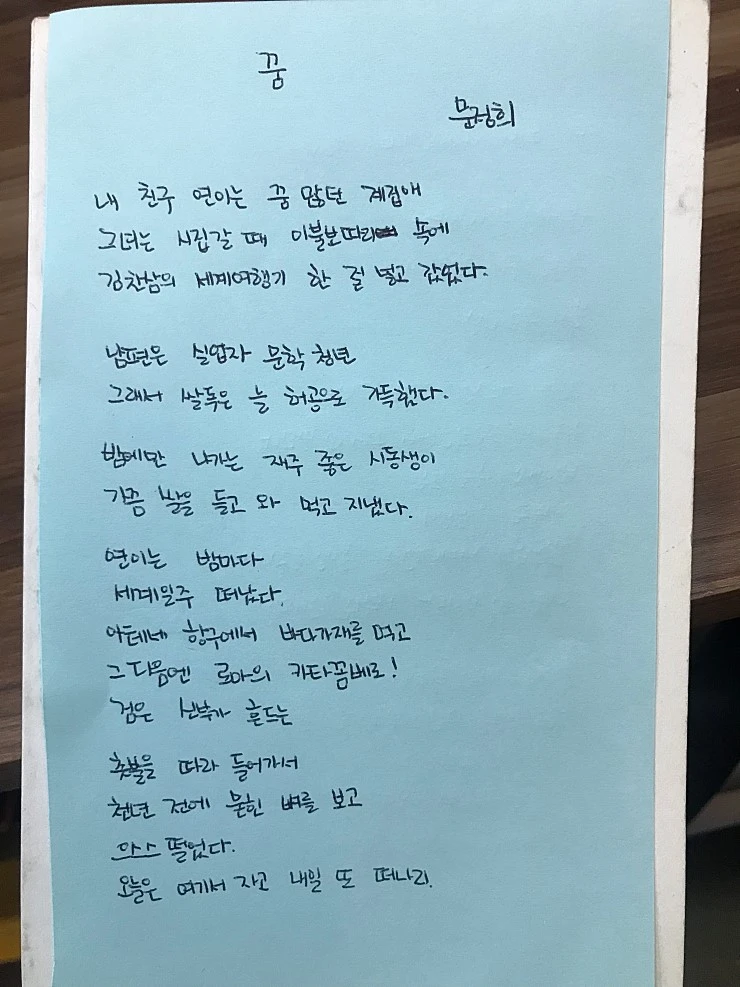 꿈
문정희
내 친구 연이는 꿈 많던 계집애
그녀는 시집갈 때 이불보따리 속에
김찬삼의 세계여행기 한 질 넣고 갔었다.
남편은 실업자 문학 청년
그래서 쌀독은 늘 허공으로 가득했다.
밤에만 나가는 재주 좋은 시동생이
가끔 쌀을 들고 와 먹고 지냈다.
연이는 밤마다
세계일주 떠났다.
아테네 항구에서 바다가재를 먹고
그 다음엔 로마의 카타꼼베로!
검은 신부가 흔드는
촛불을 따라 들어가서
천년 전에 묻힌 뼈를 보고
으스스 떨었다.
오늘은 여기서 자고 내일 또 떠나리.